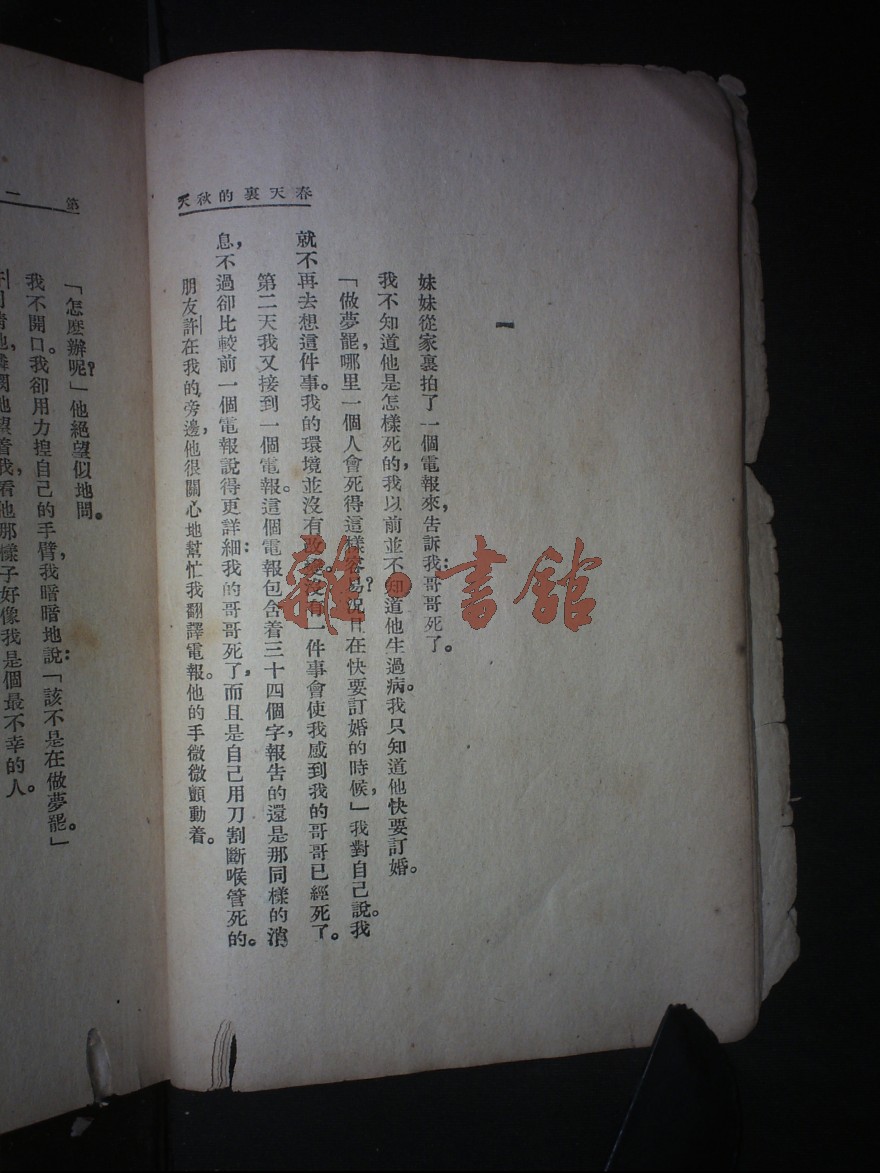 春天裏的秋天
一
妹妹從家裏拍了一個電報來，告訴我：哥哥死了。
我不知道他是怎樣死的，我以前並不知道他生過病。我只知道他快要訂婚。
「做夢罷，哪里一個人會死得這樣容易？況且在快要訂婚的時候，」我對自己說。我
就不再去想這件事。我的環境並沒有改變。沒有一件事會使我感到我的哥哥已經死了。
第二天我又接到一個電報。這個電報包含着三十四個字，報告的還是那同樣的消
息，不過卻比較前一個電報說得更詳細：我的哥哥死了，而且是自己用刀割斷喉管死的。
朋友許在我的旁邊，他很關心地幫忙我翻譯電報。他的手微微顫動着。
第一
「怎麽辦呢？」他絕望似地問。
我不開口。我卻用力揑自己的手臂，我暗暗地說：「該不是在做夢罷。」
地望着我，看他那樣子好像我是個最不幸的人。
雜·書館